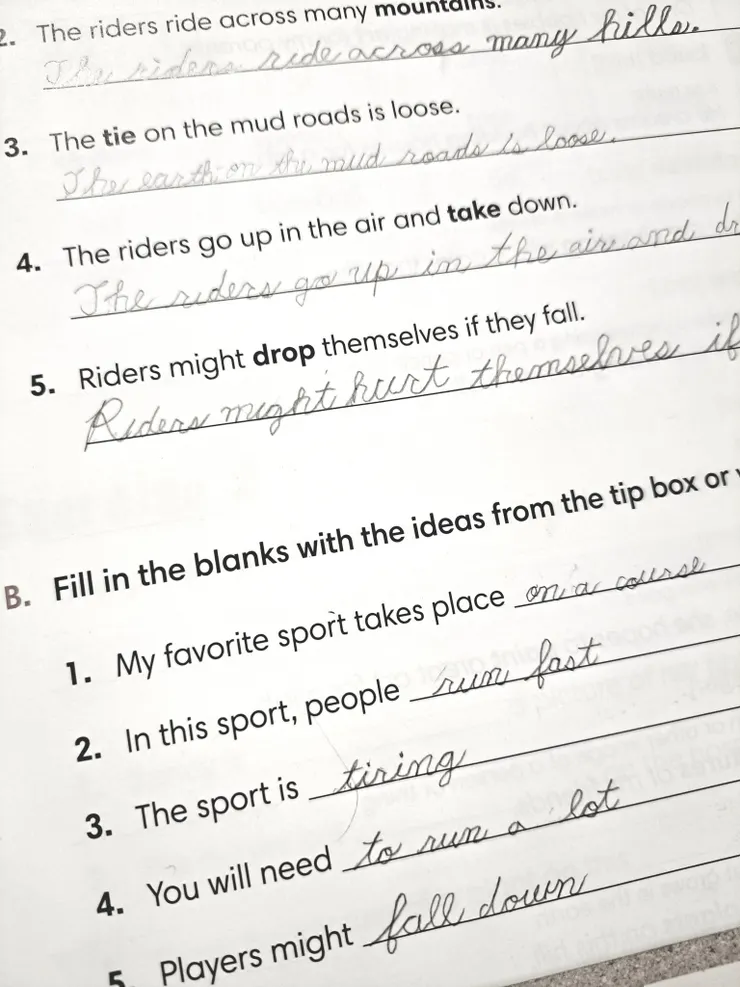 2. The riders ride across many mountains.
The riders ride across many hills.
3. The tie on the mud roads is loose.
The earth on the mud roads is loose.
4. The riders go up in the air and take down.
The riders go up in the air and dr
5. Riders might drop themselves if they fall.
Riders might hurt themselves if
B. Fill in the blanks with the ideas from the tip box or
1. My favorite sport takes place on a course
2. In this sport, people run fast
3. The sport is tiring
4. You will need to run a lot
5 Players might fall down